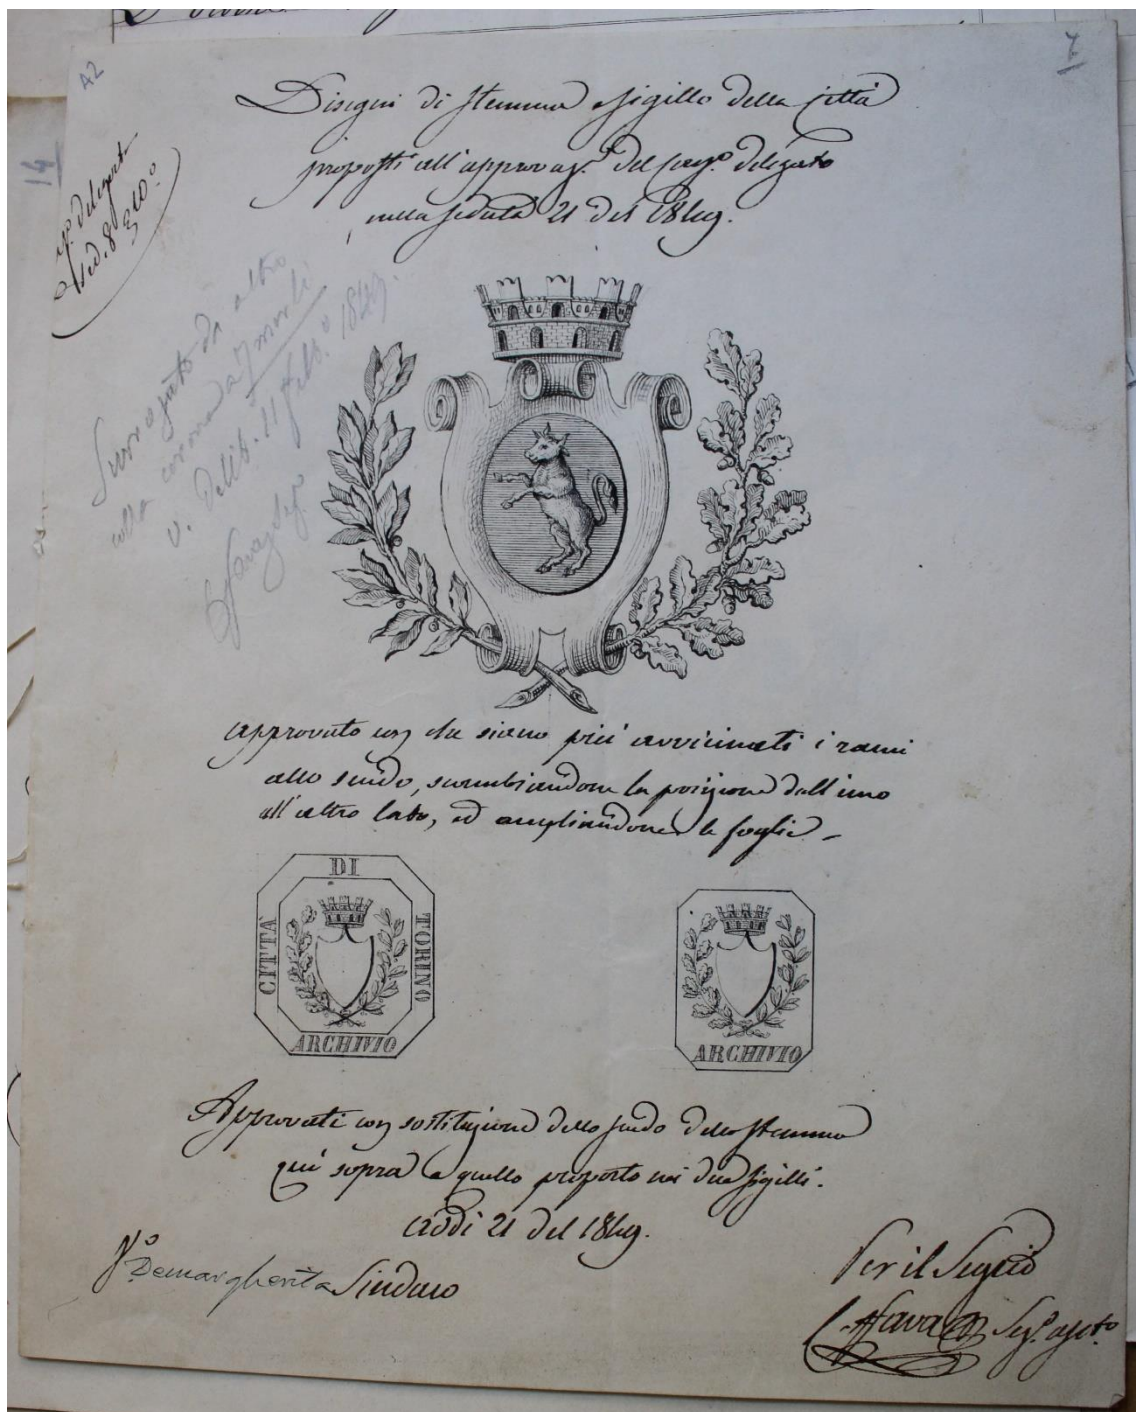 A2
7
14
Disegni di stemma e sigillo della Città
proposti all'approvaz.e del Cong.o delegato
nella seduta 21 del 1849.
delegato
Sed. 8 10.o
Surrogato da altro
colla corona a 7 merli
v. Delib. 11 febb.o 1849.
approvato con che siano più avvicinati i rami
allo scudo, scambiandone la posizione dall'uno
all'altro lato, ed ampliandone le foglie -
DI
CITTÀ
TORINO
ARCHIVIO
ARCHIVIO
Approvati con sostituzione dello scudo dello stemma
qui sopra a quello proposto nei due sigilli.
addì 21 del 1849.
V.o Demargherita Sindaco
Per il Segrio
Fava Seg.o agg.to